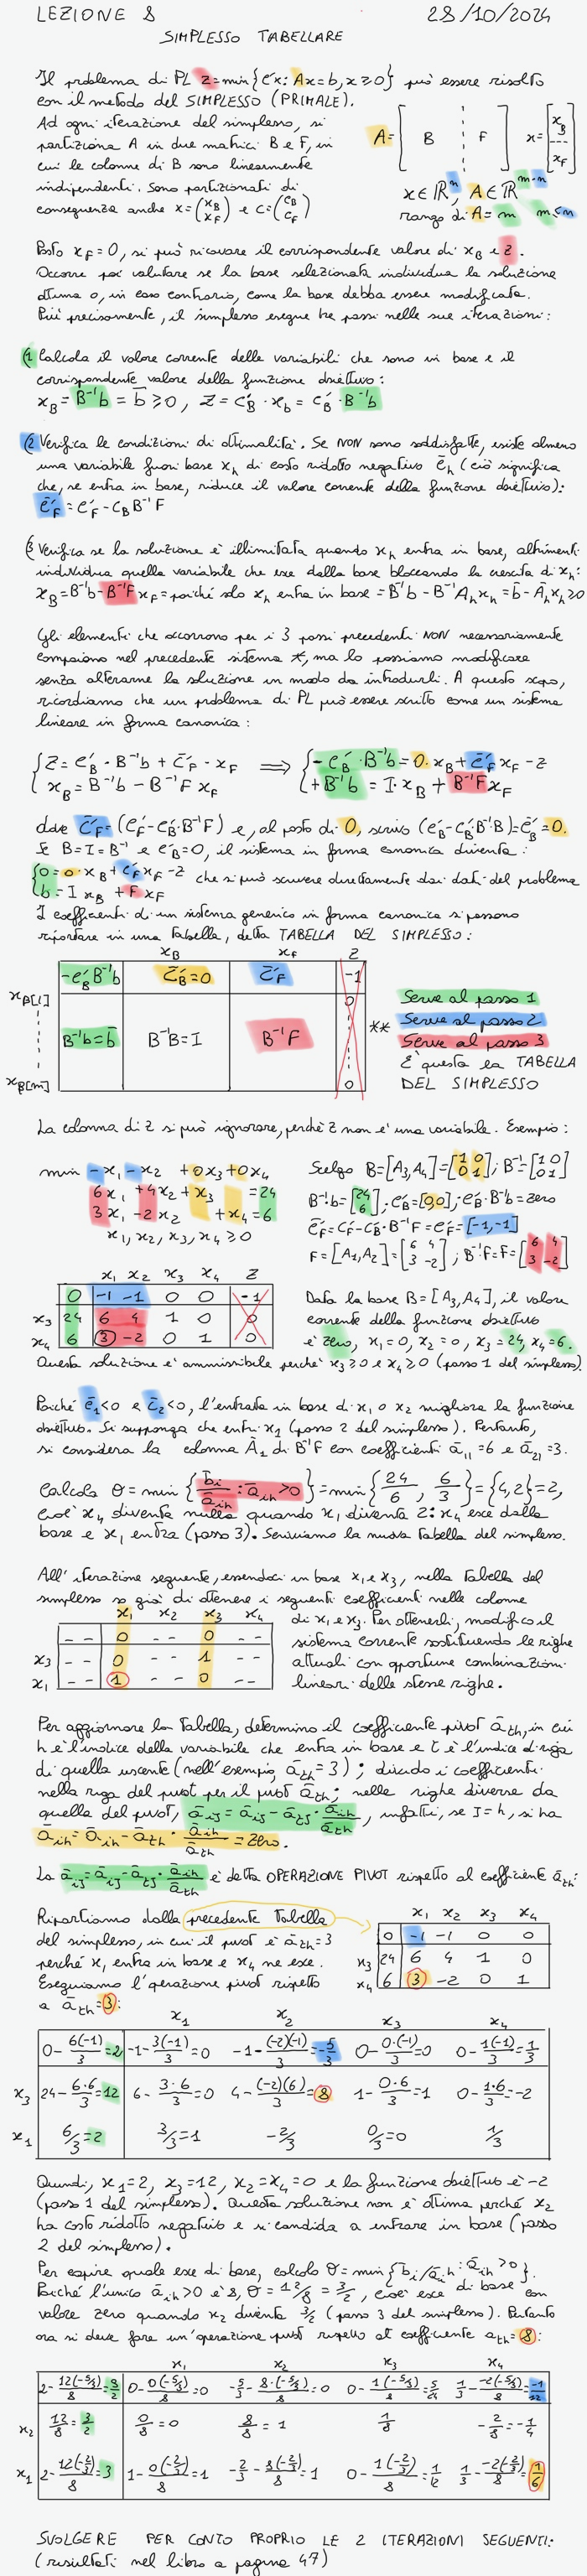 LEZIONE 8 28/10/2024
SIMPLESSO TABELLARE
Il problema di PL z=min{c'x: Ax=b, x≥0} può essere risolto
con il metodo del SIMPLESSO (PRIMALE).
Ad ogni iterazione del simplesso, si
partiziona A in due matrici B e F, in
cui le colonne di B sono linearmente
indipendenti. Sono partizionati di
conseguenza anche x=(xB xF) e c=(cB cF)
A=[B F] x=[xB xF]
x∈ℝⁿ, A∈ℝ^(m·n)
rango di A=m m≤n
Posto xF=0, si può ricavare il corrispondente valore di xB e z.
Occorre poi valutare se la base selezionata individua la soluzione
ottima o, in caso contrario, come la base debba essere modificata.
Più precisamente, il simplesso esegue tre passi nelle sue iterazioni:
(1 Calcola il valore corrente delle variabili che sono in base e il
corrispondente valore della funzione obiettivo:
xB = B⁻¹b = b̄ ≥0, z = c'B · xb = c'B · B⁻¹b
(2 Verifica le condizioni di ottimalità. Se NON sono soddisfatte, esiste almeno
una variabile fuori base xh di costo ridotto negativo c̄h (ciò significa
che, se entra in base, riduce il valore corrente della funzione obiettivo):
c̄'F = c'F - cB B⁻¹F
(3 Verifica se la soluzione è illimitata quando xh entra in base, altrimenti
individua quella variabile che esce dalla base bloccando la crescita di xh:
xB = B⁻¹b - B⁻¹F xF = poiché solo xh entra in base = B⁻¹b - B⁻¹Ah xh = b̄ - Āh xh ≥0
Gli elementi che occorrono per i 3 passi precedenti NON necessariamente
compaiono nel precedente sistema *, ma lo possiamo modificare
senza alterarne la soluzione in modo da introdurli. A questo scopo,
ricordiamo che un problema di PL può essere scritto come un sistema
lineare in forma canonica:
{z = c'B · B⁻¹b + c̄'F · xF ⟹ {-c'B · B⁻¹b = 0·xB + c̄'F xF - z
xB = B⁻¹b - B⁻¹F xF +B⁻¹b = I·xB + B⁻¹F xF
dove c̄'F = (c'F - c'B·B⁻¹F) e, al posto di 0, scrivo (c'B - c'B B⁻¹B) = c̄'B = 0.
Se B=I=B⁻¹ e c'B=0, il sistema in forma canonica diventa:
{0 = 0·xB + c'F xF - z
b = I xB + F xF
che si può scrivere direttamente dai dati del problema
I coefficienti di un sistema generico in forma canonica si possono
riportare in una tabella, detta TABELLA DEL SIMPLESSO:
xB xF z
-c'B B⁻¹b c̄'B=0 c̄'F -1
xB[1] 0
B⁻¹b=b̄ B⁻¹B=I B⁻¹F **
xB[m] 0
Serve al passo 1
Serve al passo 2
Serve al passo 3
È questa la TABELLA
DEL SIMPLESSO
La colonna di z si può ignorare, perché z non e' una variabile. Esempio:
min -x1 -x2 +0x3 +0x4
6x1 +4x2 +x3 =24
3x1 -2x2 +x4 =6
x1, x2, x3, x4 ≥0
Scelgo B=[A3,A4]=[1 0 0 1]; B⁻¹=[1 0 0 1]
B⁻¹·b=[24 6]; c'B=[0,0]; c'B·B⁻¹b=zero
c̄'F=c'F-c'B·B⁻¹F=c'F=[-1,-1]
F=[A1,A2]=[6 4 3 -2]; B⁻¹F=F=[6 4 3 -2]
x1 x2 x3 x4 z
0 -1 -1 0 0 -1
x3 24 6 4 1 0 0
x4 6 3 -2 0 1 0
Data la base B=[A3,A4], il valore
corrente della funzione obiettivo
è zero, x1=0, x2=0, x3=24, x4=6.
Questa soluzione e' ammissibile perché x3≥0 e x4≥0 (passo 1 del simplesso).
Poiché c̄1<0 e c̄2<0, l'entrata in base di x1 o x2 migliora la funzione
obiettivo. Si supponga che entri x1 (passo 2 del simplesso). Pertanto,
si considera la colonna Ā1 di B⁻¹F con coefficienti ā11=6 e ā21=3.
Calcola θ = min{b̄i/āih : āih>0} = min{24/6, 6/3} = {4,2} = 2,
cioè x4 diventa nulla quando x1 diventa 2: x4 esce dalla
base e x1 entra (passo 3). Scriviamo la nuova tabella del simplesso.
All' iterazione seguente, essendoci in base x1 e x3, nella tabella del
simplesso so già di ottenere i seguenti coefficienti nelle colonne
di x1 e x3. Per ottenerli, modifico il
sistema corrente sostituendo le righe
attuali con opportune combinazioni
lineari delle stesse righe.
x1 x2 x3 x4
-- 0 -- 0 --
x3 -- 0 -- 1 --
x1 -- 1 -- 0 --
Per aggiornare la tabella, determino il coefficiente pivot āth, in cui
h è l'indice della variabile che entra in base e t è l'indice di riga
di quella uscente (nell'esempio, āth=3); divido i coefficienti
nella riga del pivot per il pivot āth; nelle righe diverse da
quella del pivot, āij = āij - ātj · āih/āth, infatti, se J=h, si ha
āih = āih - āth · āih/āth = zero.
La āij = āij - ātj · āih/āth è detta OPERAZIONE PIVOT rispetto al coefficiente āth:
Ripartiamo dalla precedente tabella
del simplesso, in cui il pivot è āth=3
perché x1 entra in base e x4 ne esce.
Eseguiamo l'operazione pivot rispetto
a āth=3:
x1 x2 x3 x4
0 -1 -1 0 0
x3 24 6 4 1 0
x4 6 3 -2 0 1
x1 x2 x3 x4
0-6(-1)/3=2 -1-3(-1)/3=0 -1-(-2)(-1)/3=-5/3 0-0·(-1)/3=0 0-1(-1)/3=1/3
x3 24-6·6/3=12 6-3·6/3=0 4-(-2)(6)/3=8 1-0·6/3=1 0-1·6/3=-2
x1 6/3=2 3/3=1 -2/3 0/3=0 1/3
Quindi, x1=2, x3=12, x2=x4=0 e la funzione obiettivo è -2
(passo 1 del simplesso). Questa soluzione non è ottima perché x2
ha costo ridotto negativo e si candida a entrare in base (passo
2 del simplesso).
Per capire quale esce di base, calcolo θ=min{b̄i/āih : āih>0}.
Poiché l'unico āih>0 è 8, θ=12/8=3/2, cioè esce di base con
valore zero quando x2 diventa 3/2 (passo 3 del simplesso). Pertanto
ora si deve fare un'operazione pivot rispetto al coefficiente ath=8:
x1 x2 x3 x4
2-12(-5/3)/8=9/2 0-0(-5/3)/8=0 -5/3-8·(-5/3)/8=0 0-1(-5/3)/8=5/24 1/3-(-2)(-5/3)/8=-1/12
x2 12/8=3/2 0/8=0 8/8=1 1/8 -2/8=-1/4
x1 2-12(-2/3)/8=3 1-0(-2/3)/8=1 -2/3-8(-2/3)/8=1 0-1(-2/3)/8=1/12 1/3-(-2)(-2/3)/8=1/6
SVOLGERE PER CONTO PROPRIO LE 2 ITERAZIONI SEGUENTI.
(risultati nel libro a pagina 47)